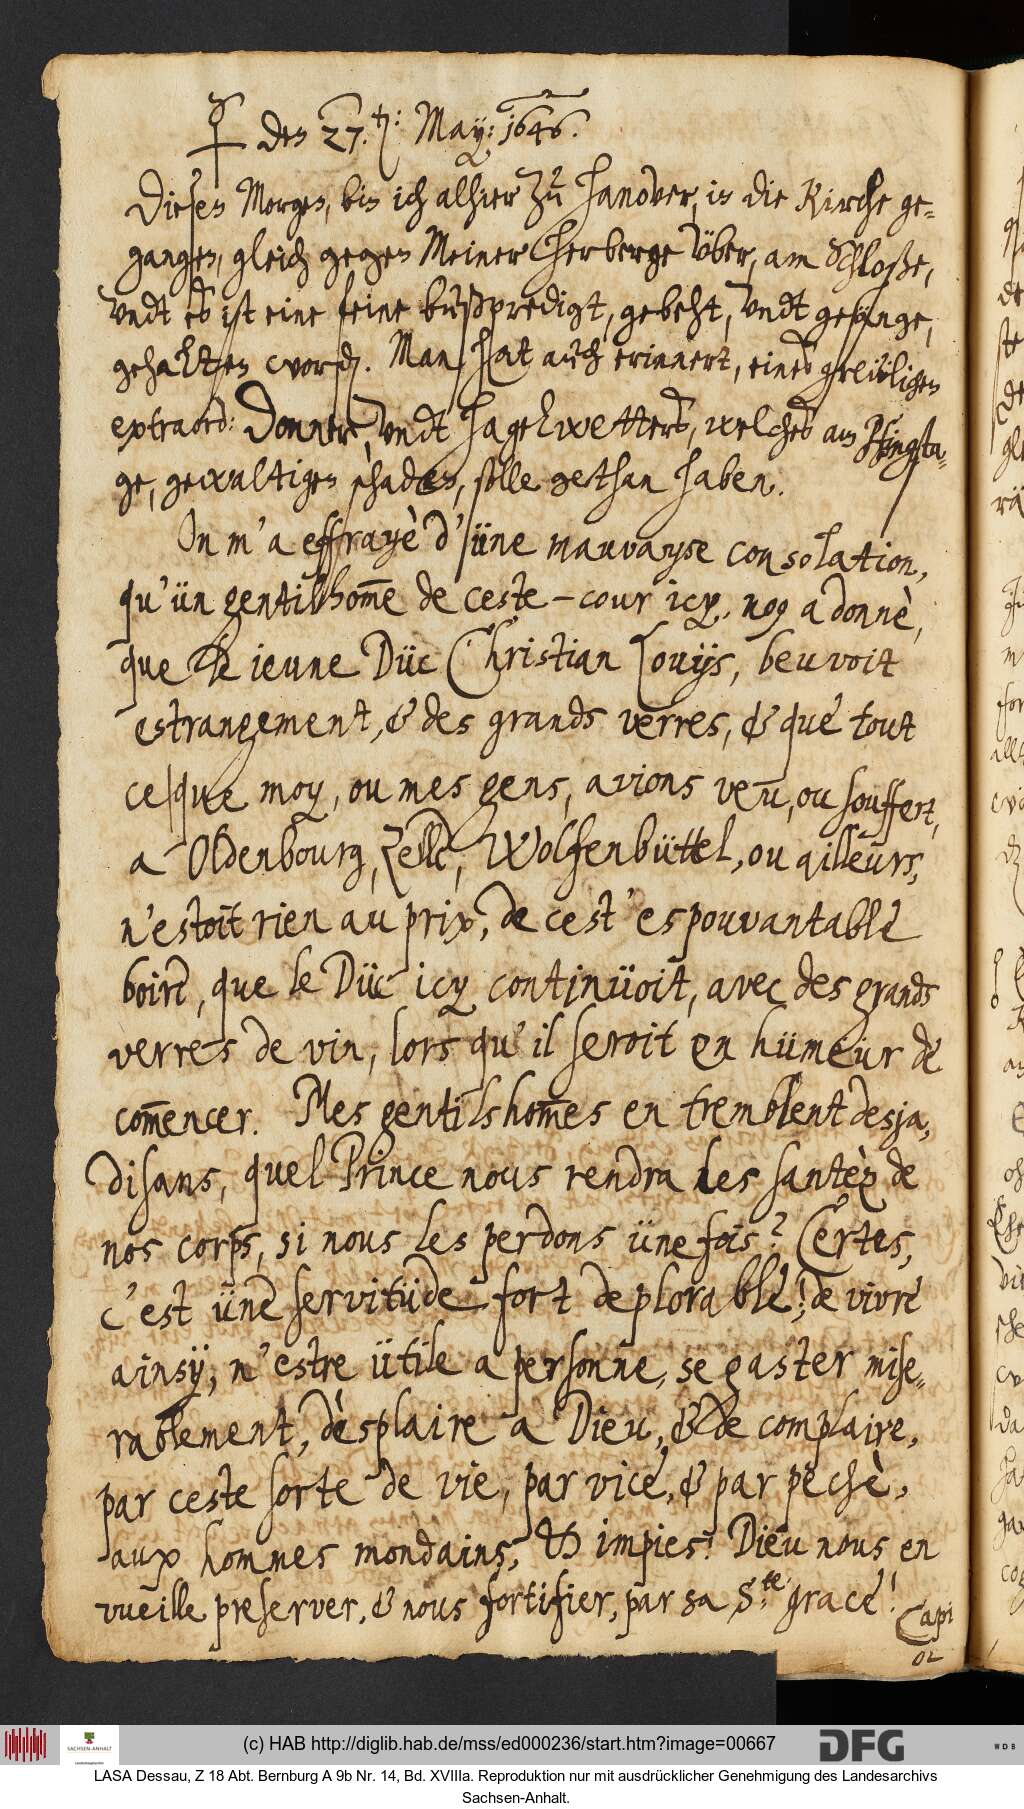 ☿ den 27.ten: May: 1646.
Diesen Morgen, bin ich alhier zu Hanover, in die Kirche ge-
gangen, gleich gegen Meiner Herberge über, am Schloße,
undt es ist eine feine bußpredigt, gebeht, undt gesänge,
gehalten worden. Man hat auch erinnert, eines greülichen
extraord: Donner, undt Hagelwetters, welches am Pfingsta-
ge, gewaltigen schaden, solle gethan haben.
On m'a effrayè d'üne mauvayse consolation,
qu'ün gentilhom̄e de ceste-cour icy, nous a donnè,
que le jeune Düc Christian Louijs, beuvoit
estrangement, & des grands verres, & que tout
ce que moy, ou mes gens, avions veu, ou souffert,
a Oldenbourg, Zelle, Wolfenbüttel, ou ailleurs,
n'estoit rien au prix, de cest' espouvantable
boire, que le Düc icy continüoit, avec des grands
verres de vin, lors qu'il seroit en hümeur de
com̄encer. Mes gentilshom̄es en tremblent desja,
disans, quel Prince nous rendra les santèz de
nos corps, si nous les perdons üne fois? Certes,
c'est üne servitüde fort deplorable! de vivre
ainsy, n'estre ütile a personne, se gaster mise-
rablement, dèsplaire a Dieu, & de complaire,
par ceste sorte de vie, par vice, & par pechè,
aux hommes mondains, & impies! Dieu nous en
vueille preserver, & nous fortifier, par sa S.te grace!
Capi
(c) HAB http://diglib.hab.de/mss/ed000236/start.htm?image=00667
SACHSEN-ANHALT
DFG
WDB
LASA Dessau, Z 18 Abt. Bernburg A 9b Nr. 14, Bd. XVIIIa. Reproduktion nur mit ausdrücklicher Genehmigung des Landesarchivs
Sachsen-Anhalt.